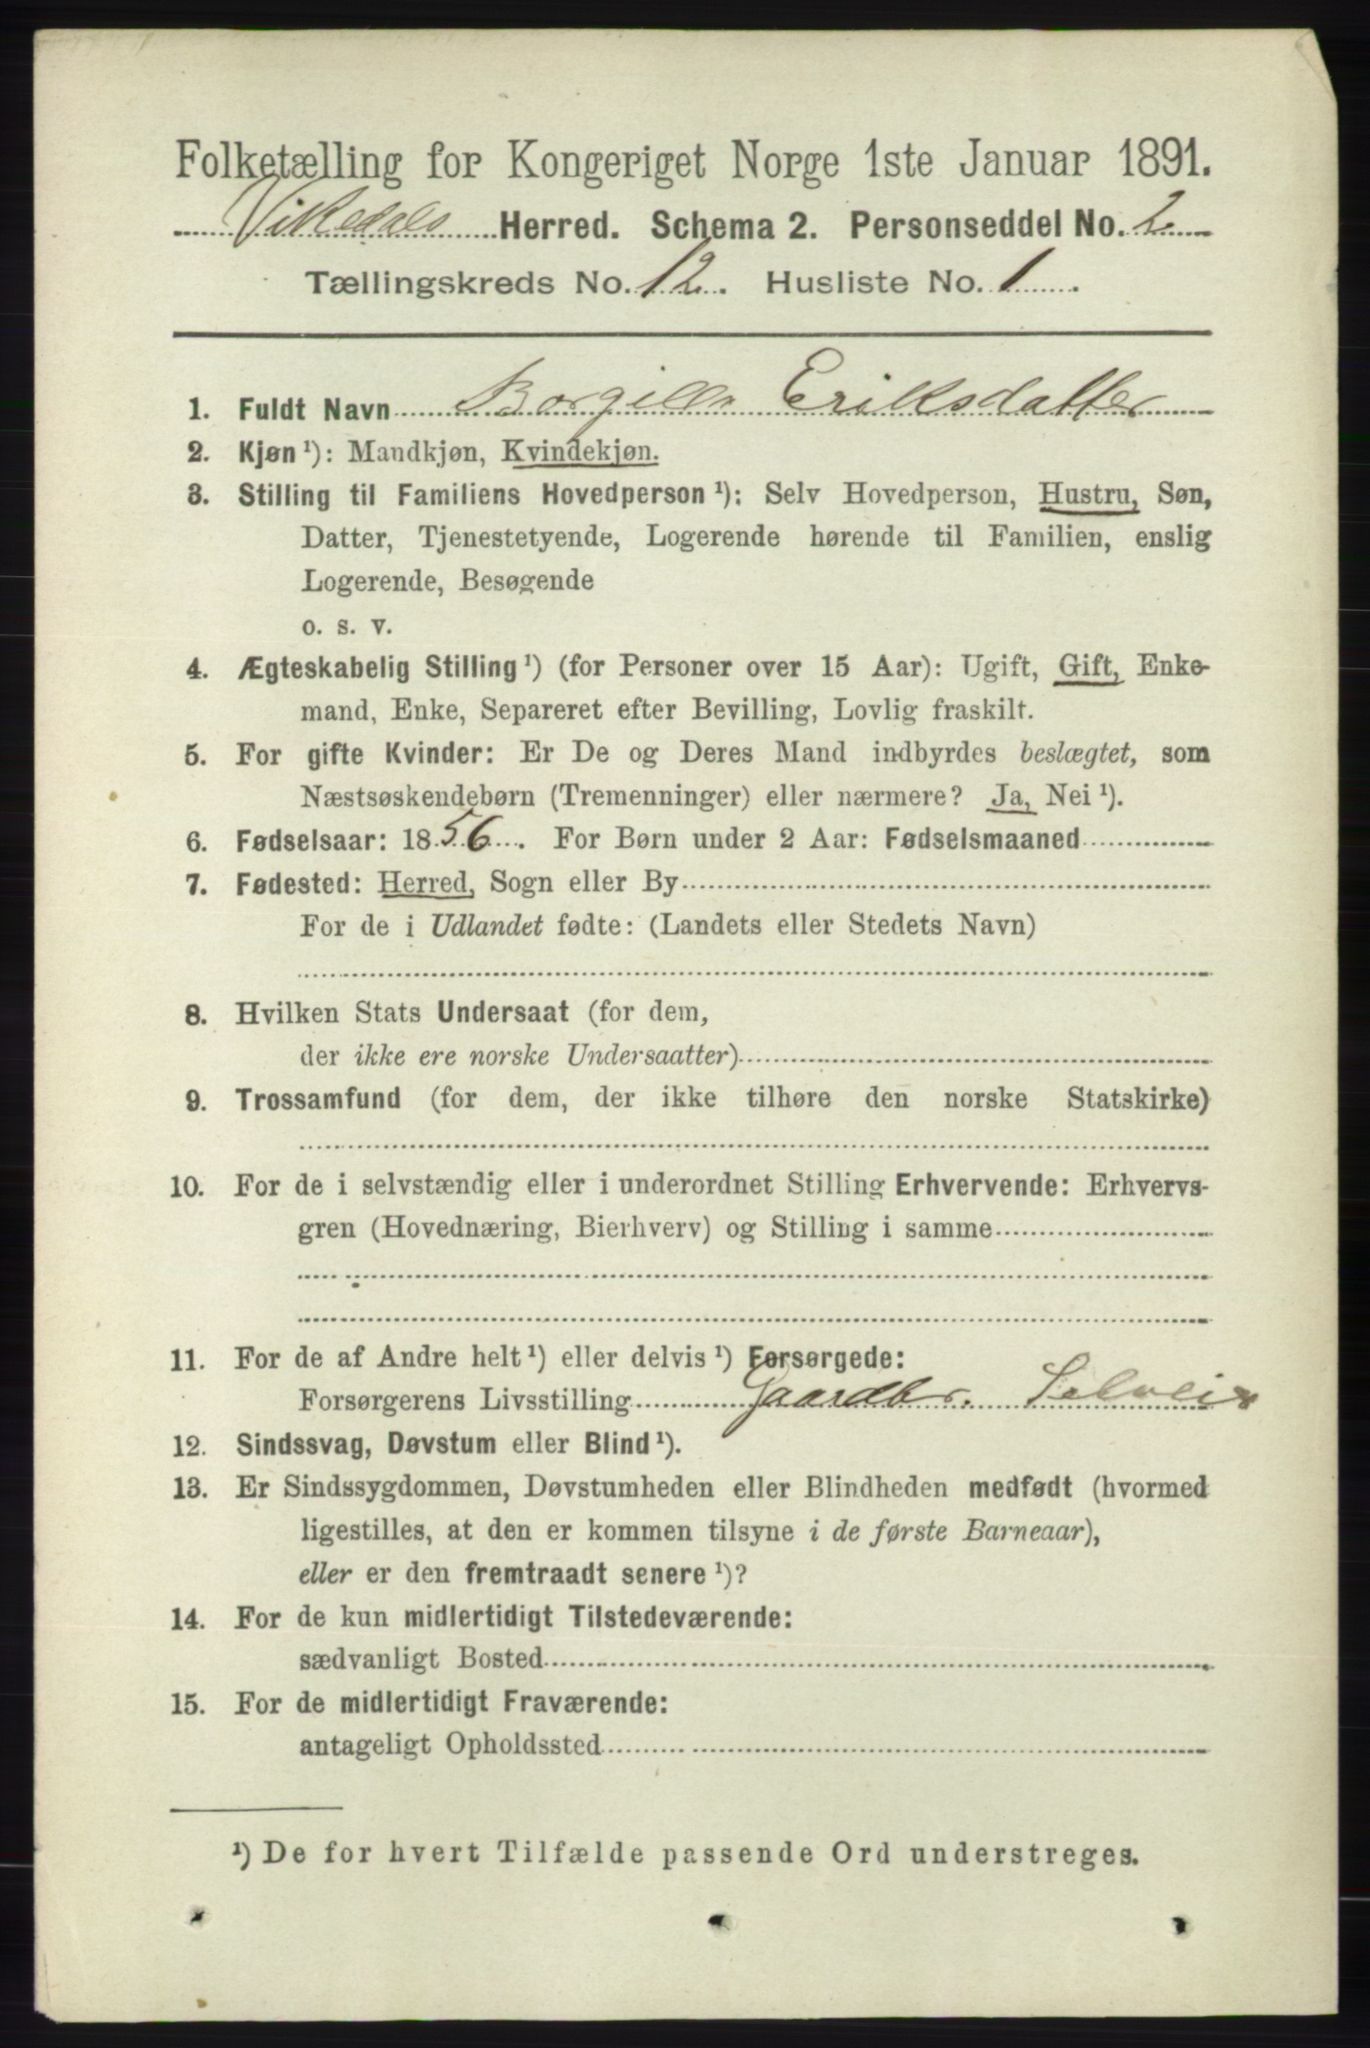 Folketælling for Kongeriget Norge 1ste Januar 1891.
Vikedals Herred. Schema 2. Personseddel No. 2
Tællingskreds No. 12. Husliste No. 1.
1. Fuldt Navn Borgilla Eriksdatter
2. Kjøn ¹): Mandkjøn, Kvindekjøn.
3. Stilling til Familiens Hovedperson ¹): Selv Hovedperson, Hustru, Søn,
Datter, Tjenestetyende, Logerende hørende til Familien, enslig
Logerende, Besøgende
o. s. v.
4. Ægteskabelig Stilling ¹) (for Personer over 15 Aar): Ugift, Gift, Enke-
mand, Enke, Separeret efter Bevilling, Lovlig fraskilt.
5. For gifte Kvinder: Er De og Deres Mand indbyrdes beslægtet, som
Næstsøskendebørn (Tremenninger) eller nærmere? Ja, Nei ¹).
6. Fødselsaar: 1856. For Børn under 2 Aar: Fødselsmaaned
7. Fødested: Herred, Sogn eller By
For de i Udlandet fødte: (Landets eller Stedets Navn)
8. Hvilken Stats Undersaat (for dem,
der ikke ere norske Undersaatter)
9. Trossamfund (for dem, der ikke tilhøre den norske Statskirke)
10. For de i selvstændig eller i underordnet Stilling Erhvervende: Erhvervs-
gren (Hovednæring, Bierhverv) og Stilling i samme
11. For de af Andre helt ¹) eller delvis ¹) Forsørgede:
Forsørgerens Livsstilling Gaardbr. Selveier
12. Sindssvag, Døvstum eller Blind ¹).
13. Er Sindssygdommen, Døvstumheden eller Blindheden medfødt (hvormed
ligestilles, at den er kommen tilsyne i de første Barneaar),
eller er den fremtraadt senere ¹)?
14. For de kun midlertidigt Tilstedeværende:
sædvanligt Bosted
15. For de midlertidigt Fraværende:
antageligt Opholdssted
¹) De for hvert Tilfælde passende Ord understreges.